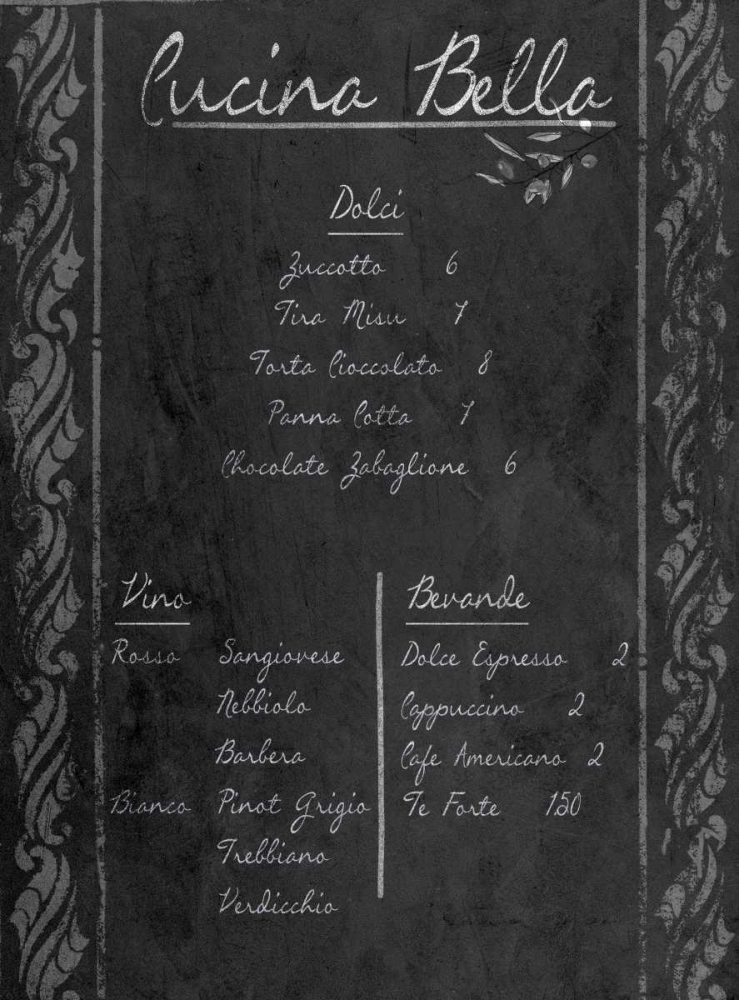 Cucina Bella
Dolci
Zuccotto 6
Tira Misu 7
Torta Cioccolato 8
Panna Cotta 7
Chocolate Zabaglione 6
Vino
Rosso Sangiovese
Nebbiolo
Barbera
Bianco Pinot Grigio
Trebbiano
Verdicchio
Bevande
Dolce Espresso 2
Cappuccino 2
Cafe Americano 2
Te Forte 1.50